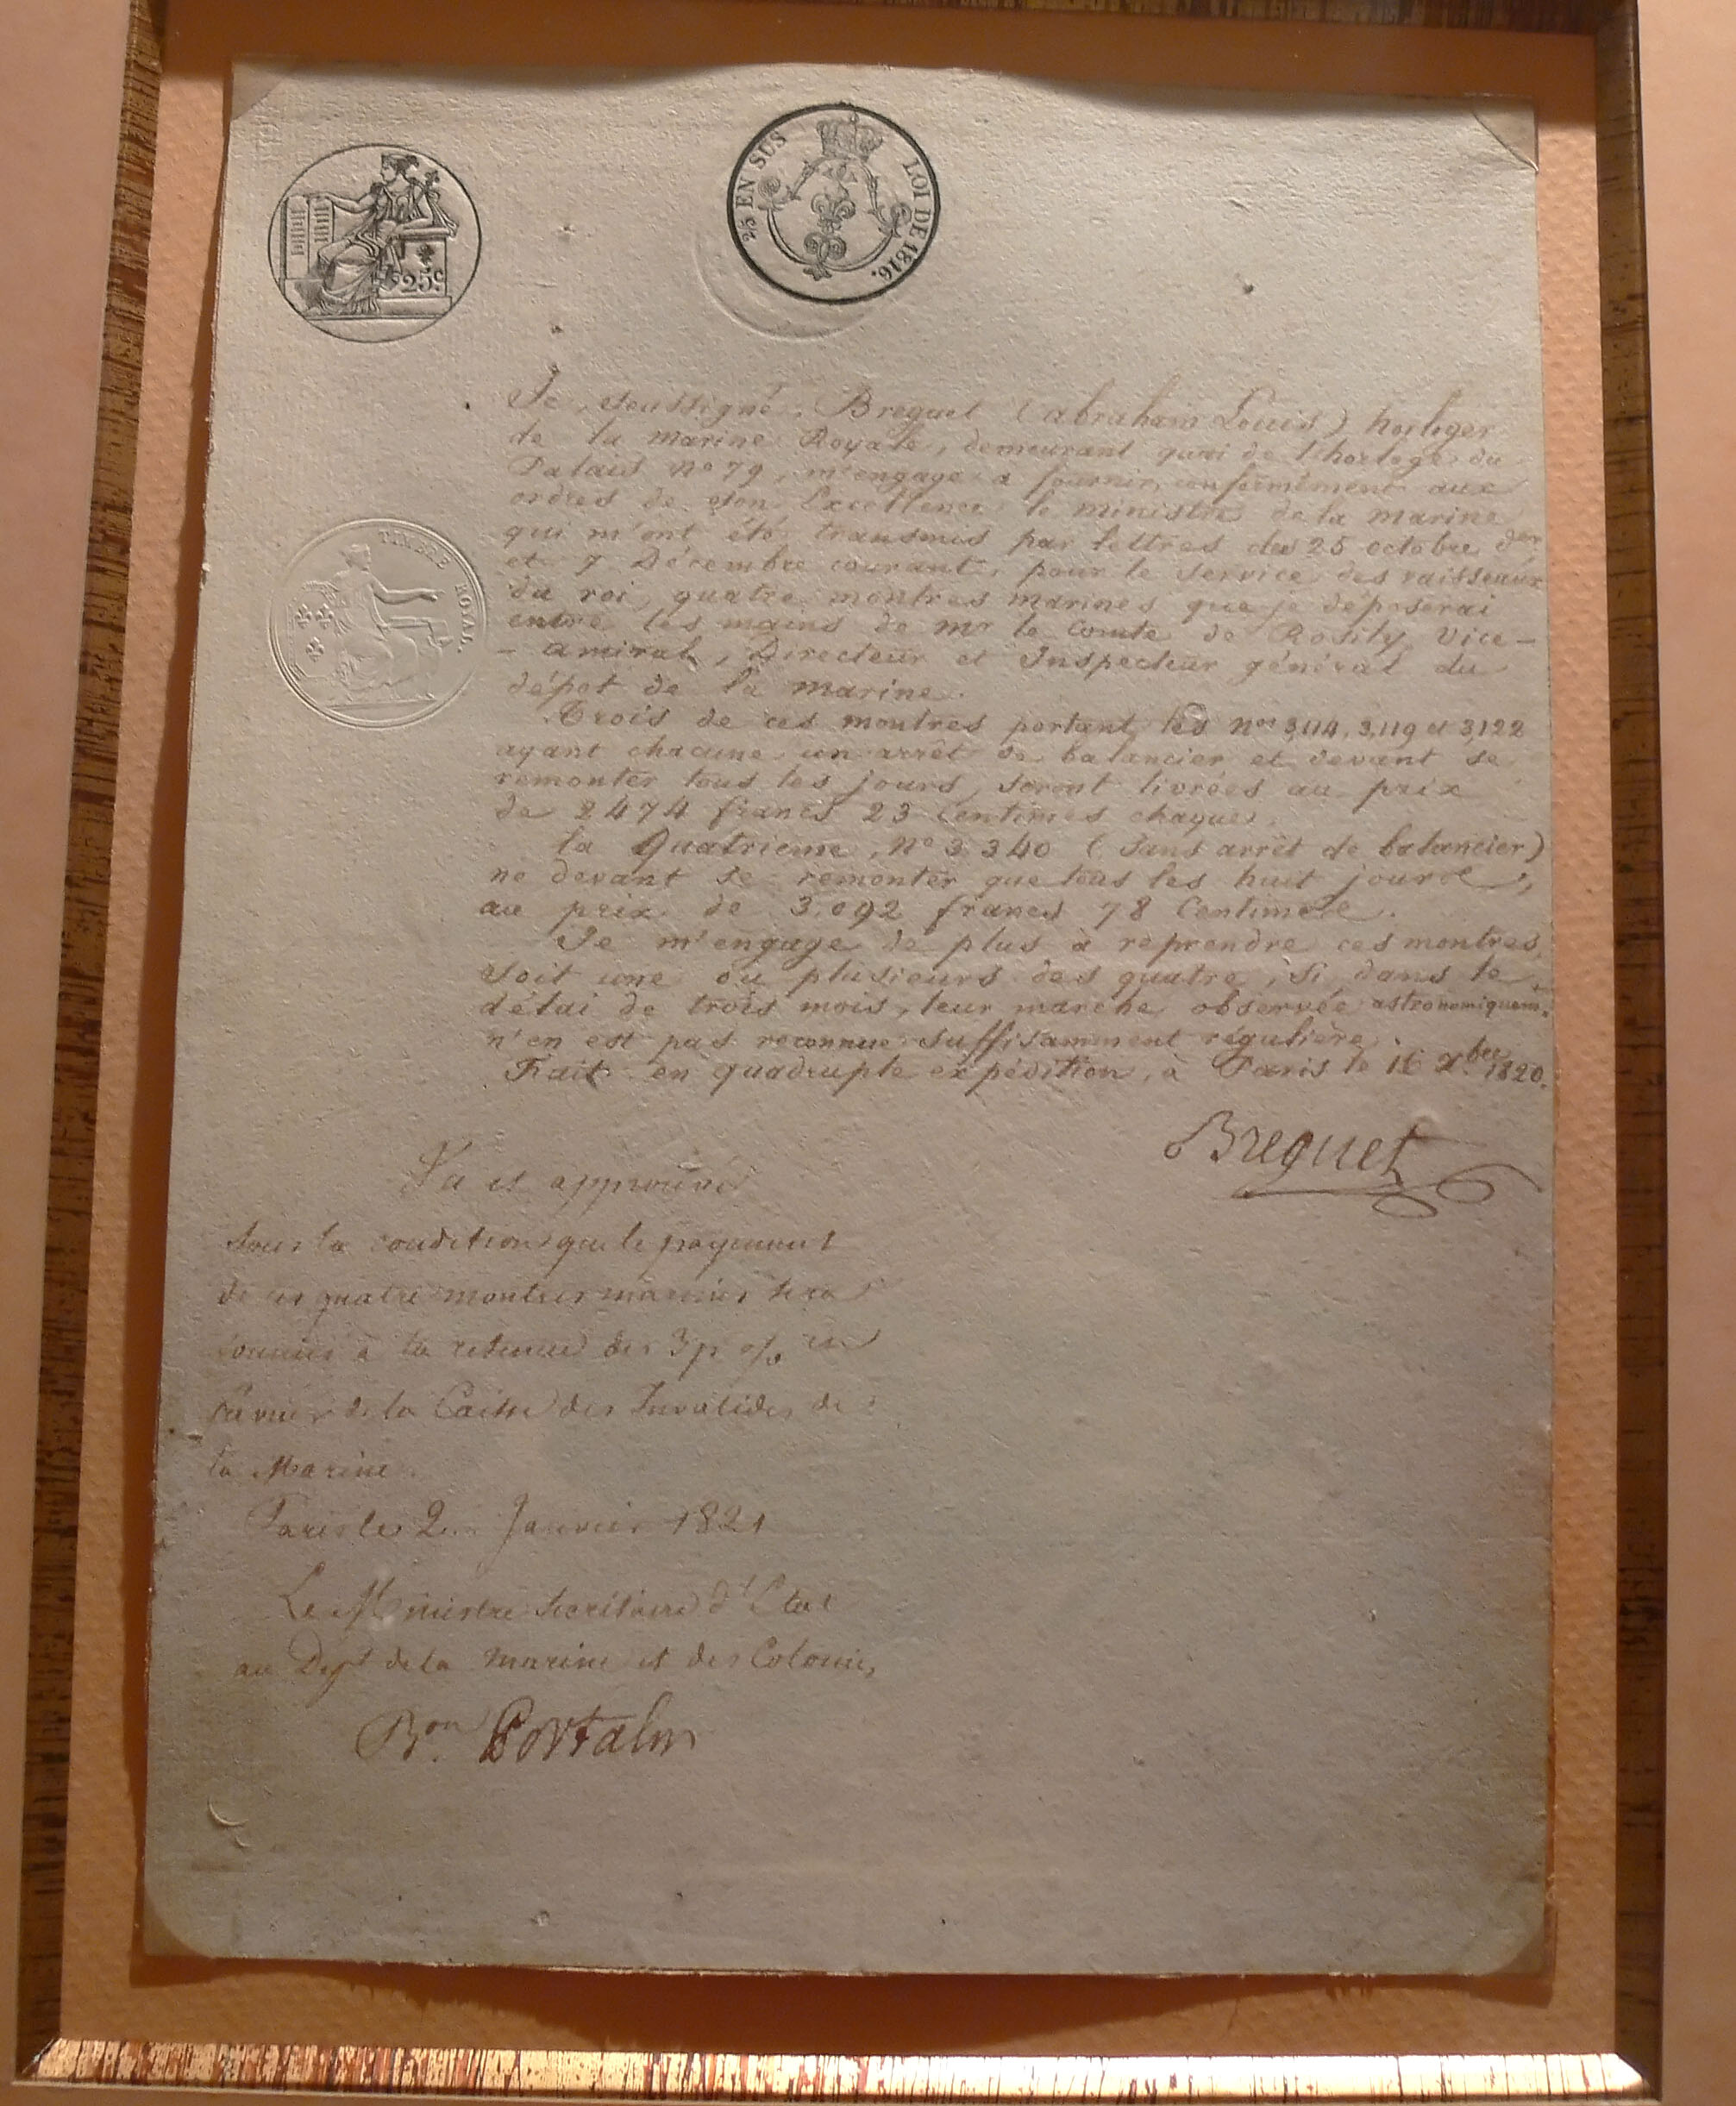 25 c.
25 EN SUS LOI DE 1816.
TIMBRE ROYAL
Je soussigné, Breguet (abraham Louis) horloger
de la marine Royale, demeurant quai de l'horloge du
Palais No 79, m'engage à fournir, conformément aux
ordres de Son Excellence le ministre de la marine
qui m'ont été transmis par lettres des 25 octobre der
et 7 Décembre courant, pour le service des vaisseaux
du roi, quatre montres marines que je déposerai
entre les mains de Mr le Comte de Rosily, Vice-
- amiral, Directeur et Inspecteur général du
dépot de la marine.
Trois de ces montres portant les nos 3,114, 3,119 et 3,122
ayant chacune un arrêt de balancier et devant se
remonter tous les jours, seront livrées au prix
de 2474 francs 23 Centimes chaque.
la Quatrieme, No 3340 (Sans arrêt de balancier)
ne devant se remonter que tous les huit jours,
au prix de 3.092 francs 78 Centimes.
Je m'engage de plus à reprendre ces montres,
soit une ou plusieurs des quatre, si, dans le
délai de trois mois, leur marche observée astronomiquemt
n'en est pas reconnue suffisamment régulière.
Fait en quadruple expédition, à Paris le 16 Xbre 1820.
Breguet
Vu et approuvé
sous la condition que le payement
de ces quatre montres marines sera
soumis à la retenue des 3 p % en
faveur de la Caisse des Invalides de
la Marine.
Paris le 2 Janvier 1821
Le Ministre Secrétaire d'Etat
au Dept de la Marine et des Colonies,
Bon Portalis